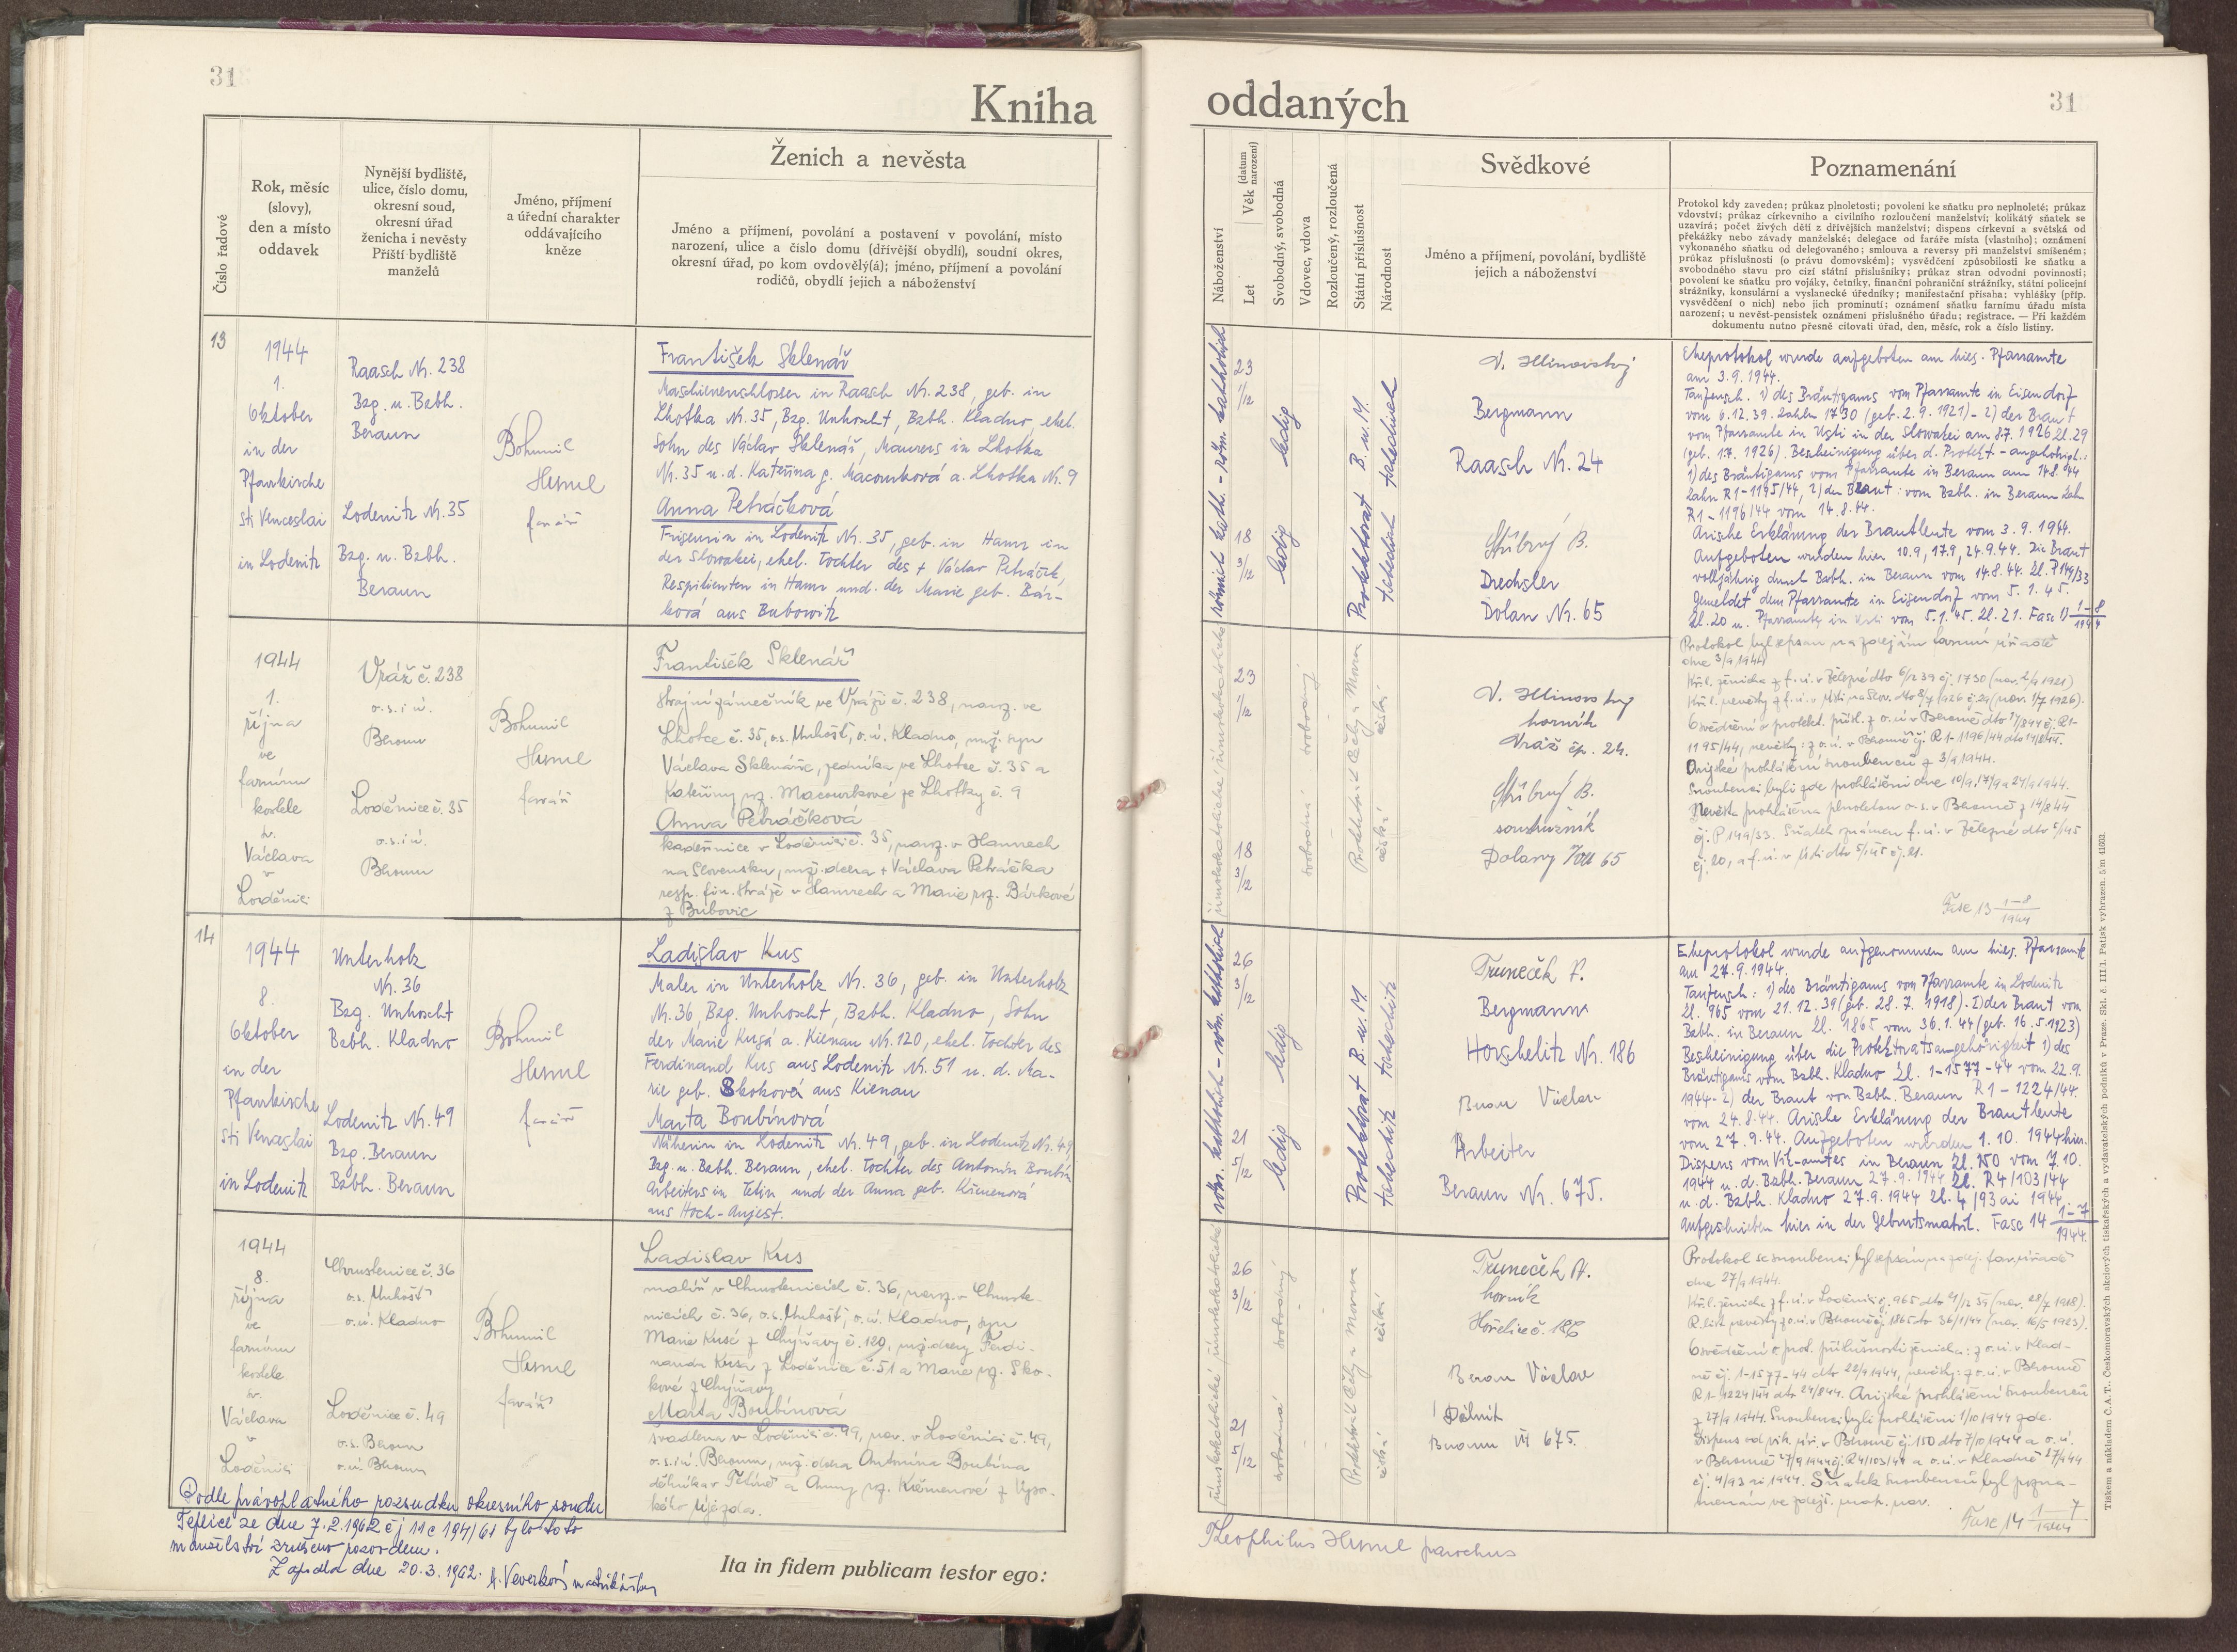 31
Kniha
Číslo řadové
Rok, měsíc
(slovy),
den a místo
oddavek
Nynější bydliště,
ulice, číslo domu,
okresní soud,
okresní úřad
ženicha i nevěsty
Příští bydliště
manželů
Jméno, příjmení
a úřední charakter
oddávajícího
kněze
Ženich a nevěsta
Jméno a příjmení, povolání a postavení v povolání, místo
narození, ulice a číslo domu (dřívější obydlí), soudní okres,
okresní úřad, po kom ovdovělý(á); jméno, příjmení a povolání
rodičů, obydlí jejich a náboženství
13
1944
1.
Oktober
in der
Pfarrkirche
sti Venceslai
in Lodenitz
Raasch Nr. 238
Bzg. u. Bzbh.
Beraun
Lodenitz Nr. 35
Bzg. u. Bzbh.
Beraun
Bohumil
Hummel
farář
František Sklenář
Maschienenschlosser in Raasch Nr. 238, geb. in
Lhotka Nr. 35, Bzg. Unhoscht, Bzbh. Kladno, ehel.
Sohn des Václav Sklenář, Maurers in Lhotka
Nr. 35 u. d. Kateřina g. Macourková a. Lhotka Nr. 9
Anna Petráčková
Friseurin in Lodenitz Nr. 35, geb. in Hamr in
der Slowakei, ehel. Tochter des + Václav Petráček,
Respizienten in Hamr und der Marie geb. Bár-
ková aus Bubowitz
1944
1.
října
ve
farním
kostele
sv.
Václava
v
Loděnici
Vráž č. 238
o.s. i ú.
Beroun
Loděnice č. 35
o.s. i ú.
Beroun
Bohumil
Hummel
farář
František Sklenář
strojní zámečník ve Vráži č. 238, naroz. ve
Lhotce č. 35, o.s. Unhošť, o.ú. Kladno, mž. syn
Václava Sklenáře, zedníka ve Lhotce č. 35 a
Kateřiny roz. Macourkové ze Lhotky č. 9
Anna Petráčková
kadeřnice v Loděnici č. 35, naroz. v Hamrech
na Slovensku, mž. dcera + Václava Petráčka
resp. fin. stráže v Hamrech a Marie roz. Bárkové
z Bubovic
14
1944
8.
Oktober
in der
Pfarrkirche
sti Venceslai
in Lodenitz
Unterholz
Nr. 36
Bzg. Unhoscht
Bzbh. Kladno
Lodenitz Nr. 49
Bzg. Beraun
Bzbh. Beraun
Bohumil
Hummel
farář
Ladislav Kus
Maler in Unterholz Nr. 36, geb. in Unterholz
Nr. 36, Bzg. Unhoscht, Bzbh. Kladno, Sohn
der Marie Kusá a. Kienau Nr. 120, ehel. Tochter des
Ferdinand Kus aus Lodenitz Nr. 51 u. d. Ma-
rie geb. Skoková aus Kienau
Marta Boubínová
Näherin in Lodenitz Nr. 49, geb. in Lodenitz Nr. 49
Bzg. u. Bzbh. Beraun, ehel. Tochter des Antonín Boubín
Arbeiters in Tetin und der Anna geb. Křemenová
aus Hoch-Aujest.
1944
8.
října
ve
farním
kostele
sv.
Václava
v
Loděnici
Chrustenice č. 36
o.s. Unhošť
o.ú. Kladno
Loděnice č. 49
o.s. Beroun
o.ú. Beroun
Bohumil
Hummel
farář
Ladislav Kus
malíř v Chrustenicích č. 36, naroz. v Chruste-
nicích č. 36, o.s. Unhošť, o.ú. Kladno, syn
Marie Kusé z Chýňavy č. 120, mž. dcery Ferdi-
nanda Kusa z Loděnice č. 51 a Marie roz. Sko-
kové z Chýňavy
Marta Boubínová
švadlena v Loděnici č. 49, nar. v Loděnici č. 49,
o.s. i ú. Beroun, mž. dcera Antonína Boubína
dělníka v Tetíně a Anny roz. Křemenové z Vyso-
kého Újezda.
Podle právoplatného rozsudku okresního soudu
Teplice ze dne 7.2.1962 čj 11c 194/61 bylo toto
manželství zrušeno rozvodem.
Zapsala dne 20.3.1962. A. Neverková matrikářka
Ita in fidem publicam testor ego:
oddaných
31
Náboženství
Let
Věk (datum narození)
Svobodný, svobodná
Vdovec, vdova
Rozloučený, rozloučená
Státní příslušnost
Národnost
Svědkové
Jméno a příjmení, povolání, bydliště
jejich a náboženství
Poznamenání
Protokol kdy zaveden; průkaz plnoletosti; povolení ke sňatku pro neplnoleté; průkaz
vdovství; průkaz církevního a civilního rozloučení manželství; kolikátý sňatek se
uzavírá; počet živých dětí z dřívějších manželství; dispens církevní a světská od
překážky nebo závady manželské; delegace od faráře místa (vlastního); oznámení
vykonaného sňatku od delegovaného; smlouva a reversy při manželství smíšeném;
průkaz příslušnosti (o právu domovském); vysvědčení způsobilosti ke sňatku a
svobodného stavu pro cizí státní příslušníky; průkaz stran odvodní povinnosti;
povolení ke sňatku pro vojáky, četníky, finanční pohraniční strážníky, státní policejní
strážníky, konsulární a vyslanecké úředníky; manifestační přísaha; vyhlášky (příp.
vysvědčení o nich) nebo jich prominutí; oznámení sňatku farnímu úřadu místa
narození; u nevěst-pensistek oznámení příslušného úřadu; registrace. — Při každém
dokumentu nutno přesně citovati úřad, den, měsíc, rok a číslo listiny.
23
1/12
18
3/12
ledig
ledig
Protektorat B. u. M.
tschechisch
tschechisch
V. Hlinovský
Bergmann
Raasch Nr. 24
Stříbrný B.
Drechsler
Dolan Nr. 65
Eheprotokol wurde aufgeboten am hies. Pfarramte
am 3.9.1944.
Taufensch. 1) des Bräutigams vom Pfarramte in Eisendorf
vom 6.12.39. Zahn 1730 (geb. 2.9.1921) - 2) der Braut
vom Pfarramte in Usti in der Slowakei am 8.7.1926 Zl. 29
(geb. 1.7. 1926). Bescheinigung über d. Protekt-angehörigk.:
1) des Bräutigams vom Pfarramte in Beraun am 14.8.44
Zahn R1-1195/44, 2) der Braut: vom Bzbh. in Beraun Zahn
R1-1196/44 vom 14.8.44.
Arische Erklärung der Brautleute vom 3.9.1944.
Aufgeboten wurden hier 10.9, 17.9, 24.9.44. Die Braut
volljährig durch Bzbh. in Beraun vom 14.8.44. Zl. P 149/33
Gemeldet dem Pfarramte in Eisendorf vom 5.1.45.
Zl. 20 u. Pfarramte in Usti vom 5.1.45. Zl. 21. Fasc 13 1-8/1944
23
1/12
18
3/12
svobodný
svobodná
Protektorát Čechy a Morava
česká
česká
V. Hlinovský
horník
Vráž čp. 24.
Stříbrný B.
soustružník
Dolany 65
Protokol byl sepsán na zdejším farním úřadě
dne 3/9 1944
Křtl. ženicha z f.ú. v Železné dto 6/12 39 čj. 1730 (nar. 2/9 1921)
Křtl. nevěsty z f.ú. v Ústí na Slov. dto 8/7 1926 čj. 29 (nar. 1/7 1926).
Osvědčení o protekt. přísl. z o.ú. v Berouně dto 14/8 44 čj. R1-
1195/44, nevěsty: z o.ú. v Berouně čj. R1-1196/44 dto 14/8 44.
Arijské prohlášení snoubenců z 3/9 1944.
Snoubenci byli zde prohlášeni dne 10/9, 17/9 a 24/9 1944.
Nevěsta prohlášena plnoletou o.s. v Berouně z 14/8 44
čj. P 149/33. Sňatek oznámen f.ú. v Železné dto 5/1 45
čj. 20, a f.ú. v Ústí dto 5/1 45 čj. 21.
Fasc 13 1-8/1944
26
3/12
21
5/12
ledig
ledig
Protektorat B. u. M.
tschechisch
tschechisch
Truneček A.
Bergmann
Horschelitz Nr. 186
Beran Václav
Arbeiter
Beraun Nr. 675.
Eheprotokol wurde aufgenommen am hies. Pfarramte
am 27.9.1944.
Taufensch: 1) des Bräutigams vom Pfarramte in Lodenitz
Zl. 965 vom 21.12.39 (geb. 28.7.1918). 2) der Braut vom
Bzbh. in Beraun Zl. 1865 vom 36.1.44 (geb. 16.5.1923)
Bescheinigung über die Protektoratsangehörigkeit 1) des
Bräutigams vom Bzbh. Kladno Zl. 1-1577-44 vom 22.9.
1944-2) der Braut von Bzbh. Beraun R1-1224/44.
vom 24.8.44. Arische Erklärung der Brautleute
vom 27.9.44. Aufgeboten wurden 1.10.1944 hier.
Dispens vom Vik-amtes in Beraun Zl. 150 vom 7.10.
1944 u. d. Bzbh. Beraun 27.9.1944 Zl. R4/103/44
u. d. Bzbh. Kladno 27.9.1944 Zl. 4/93 ai 1944.
Aufgeschrieben hier in der Geburtsmatrik. Fasc 14 1-7/1944.
26
3/12
21
5/12
svobodný
svobodná
Protektorát Čechy a Morava
česká
česká
Truneček A.
horník
Hořelice č. 186
Beran Václav
Dělník
Beroun 675.
Protokol se snoubenci byl sepsán na zdej. far. úřadě
dne 27/9 1944.
Křtl. ženicha z f.ú. v Loděnici čj. 965 dto 21/12 39 (nar. 28/7 1918).
R. list nevěsty z o.ú. v Berouně čj. 1865 dto 36/1/44 (nar. 16/5 1923).
Osvědčení o prot. příslušnosti ženicha: z o.ú. v Klad-
ně čj. 1-1577-44 dto 22/9 1944, nevěsty: z o.ú. v Berouně
R1-1224/44 dto 24/8 44. Arijské prohlášení snoubenců
z 27/9 1944. Snoubenci byli prohlášeni 1/10 1944 zde.
Dispens od vik. úř. v Berouně čj. 150 dto 7/10 1944 a o.ú.
v Berouně 27/9 1944 čj. R4/103/44 a o.ú. v Kladně 27/9 44
čj. 4/93 ai 1944. Sňatek snoubenců byl pozna-
menán ve zdejší mat. nar.
Fasc 14 1-7/1944
Theophilus Hummel parochus
Tiskem a nákladem Č.A.T., Českomoravských akciových tiskařských a vydavatelských podniků v Praze. Skl. č. III1. Patisk vyhrazen. 5/m 41603.